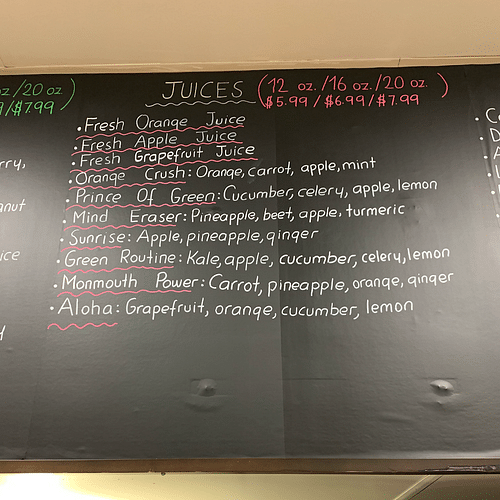 oz/20 oz)
/$7.99
JUICES (12 oz./16 oz./20 oz.)
$5.99/$6.99/$7.99
• Fresh Orange Juice
• Fresh Apple Juice
• Fresh Grapefruit Juice
• Orange Crush: Orange, carrot, apple, mint
• Prince Of Green: Cucumber, celery, apple, lemon
• Mind Eraser: Pineapple, beet, apple, turmeric
• Sunrise: Apple, pineapple, ginger
• Green Routine: Kale, apple, cucumber, celery, lemon
• Monmouth Power: Carrot, pineapple, orange, ginger
• Aloha: Grapefruit, orange, cucumber, lemon